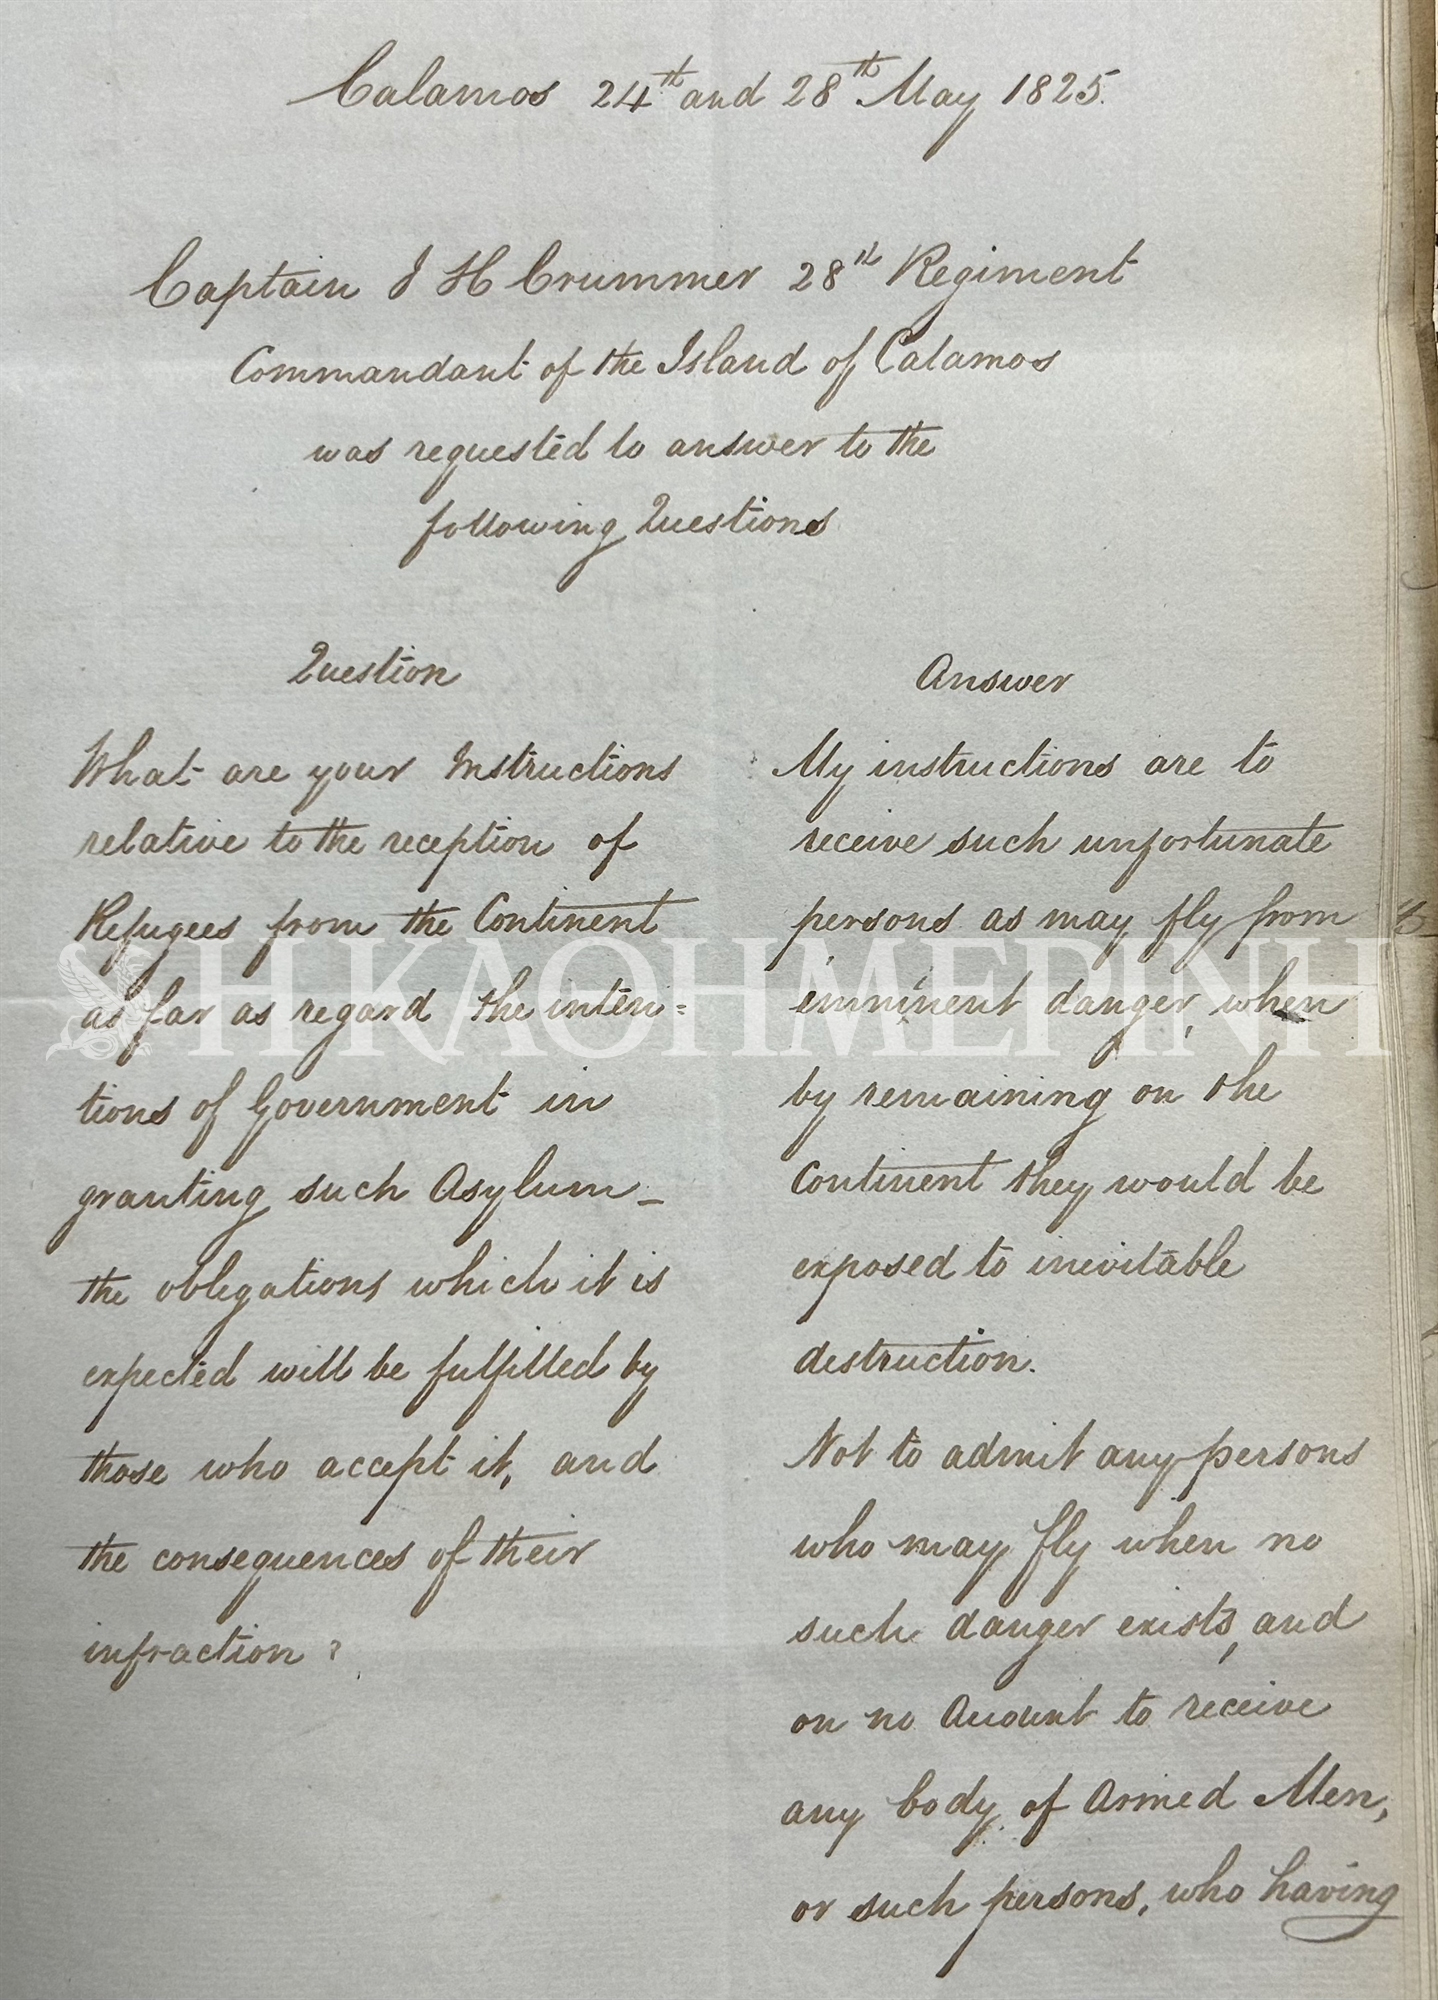 Calamos 24th and 28th May 1825.
Captain J H Crummer 28th Regiment
Commandant of the Island of Calamos
was requested to answer to the
following Questions
Question
What are your Instructions
relative to the reception of
Refugees from the Continent
as far as regard the inten=
tions of Government in
granting such Asylum_
the obligations which it is
expected will be fulfilled by
those who accept it, and
the consequences of their
infraction?
Answer
My instructions are to
receive such unfortunate
persons as may fly from
imminent danger, when
by remaining on the
Continent they would be
exposed to inevitable
destruction.
Not to admit any persons
who may fly when no
such danger exists, and
on no Account to receive
any body of Armed Men,
or such persons, who having
Η ΚΑΘΗΜΕΡΙΝΗ